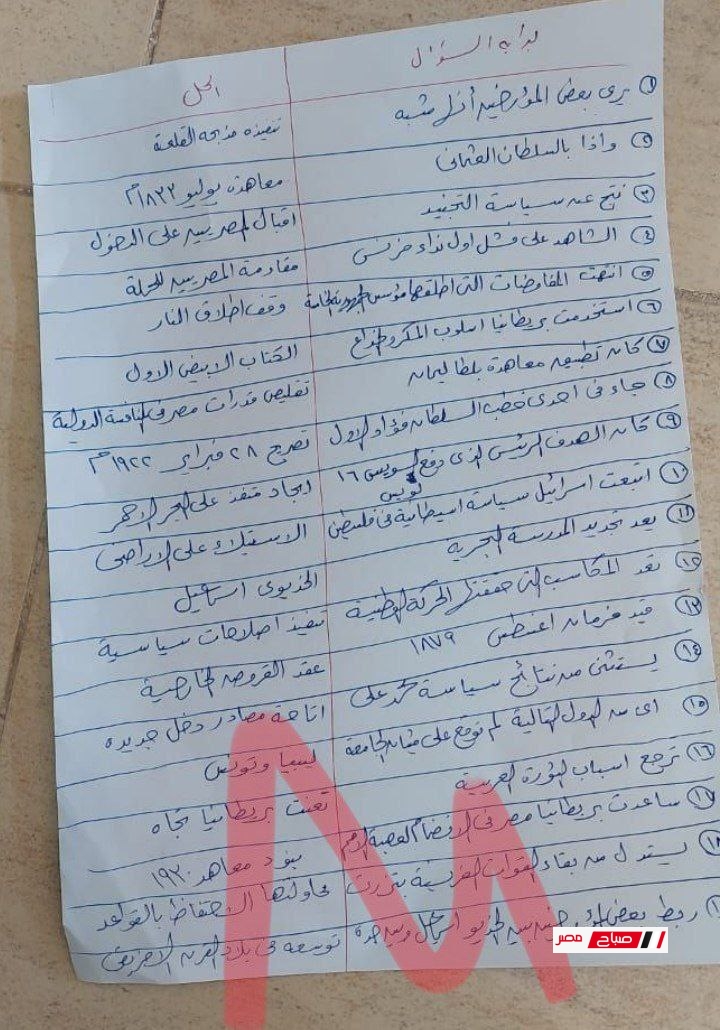 بداية السؤال	الحل
① يرى بعض المؤرخين أنها شبه	تنفيذه مذبحة القلعة
② واذا بالسلطان العثمانى	معاهدة يوليو ١٨٣٣م
③ نتج عن سياسة التجنيد	اقبال المصريين على الدخول
④ الشاهد على فشل اول نداء فرنسى	مقاومة المصريين للحملة
⑤ انتهت المفاوضات التى اطلقها مؤسس الجمهورية الخامسة	وقف اطلاق النار
⑥ استخدمت بريطانيا اسلوب المكر والخداع	الكتاب الابيض الاول
⑦ كان تطبيق معاهدة بلطا ليمان	تقليص قدرات مصر فى المنافسة الدولية
⑧ جاء فى احدى خطب السلطان فؤاد الاول	تصريح ٢٨ فبراير ١٩٢٢م
⑨ كان الهدف الرئيس الذى دفع لويس ١٦	ايجاد منفذ على البحر الاحمر
⑩ اتبعت اسرائيل سياسة استيطانية فى فلسطين	الاستيلاء على الاراضى
⑪ يعد تجديد المدرسة البحرية	الخديوى اسماعيل
⑫ تعد المكاسب التى حققتها الحركة الوطنية	تنفيذ اصلاحات سياسية
⑬ قيد فرمان اغسطس ١٨٧٩	عقد القروض الخارجية
⑭ يستثنى من نتائج سياسة محمد على	اتاحة مصادر دخل جديده
⑮ اى من الدول التالية لم توقع على ميثاق الجامعة	ليبيا وتونس
⑯ ترجع اسباب الثورة العربية	تعنت بريطانيا تجاه
⑰ ساعدت بريطانيا مصر فى الانضمام لعصبة الامم	بنود معاهدة ١٩٣٠
١٨ يستدل من بقاء القوات الفرنسية بتررت	محاولتها الاحتفاظ بالقواعد
ربط بعض المؤرخين بين الخديو اسماعيل وبين	توسعه فى بلاد القرن الافريقى
صباح مصر
M